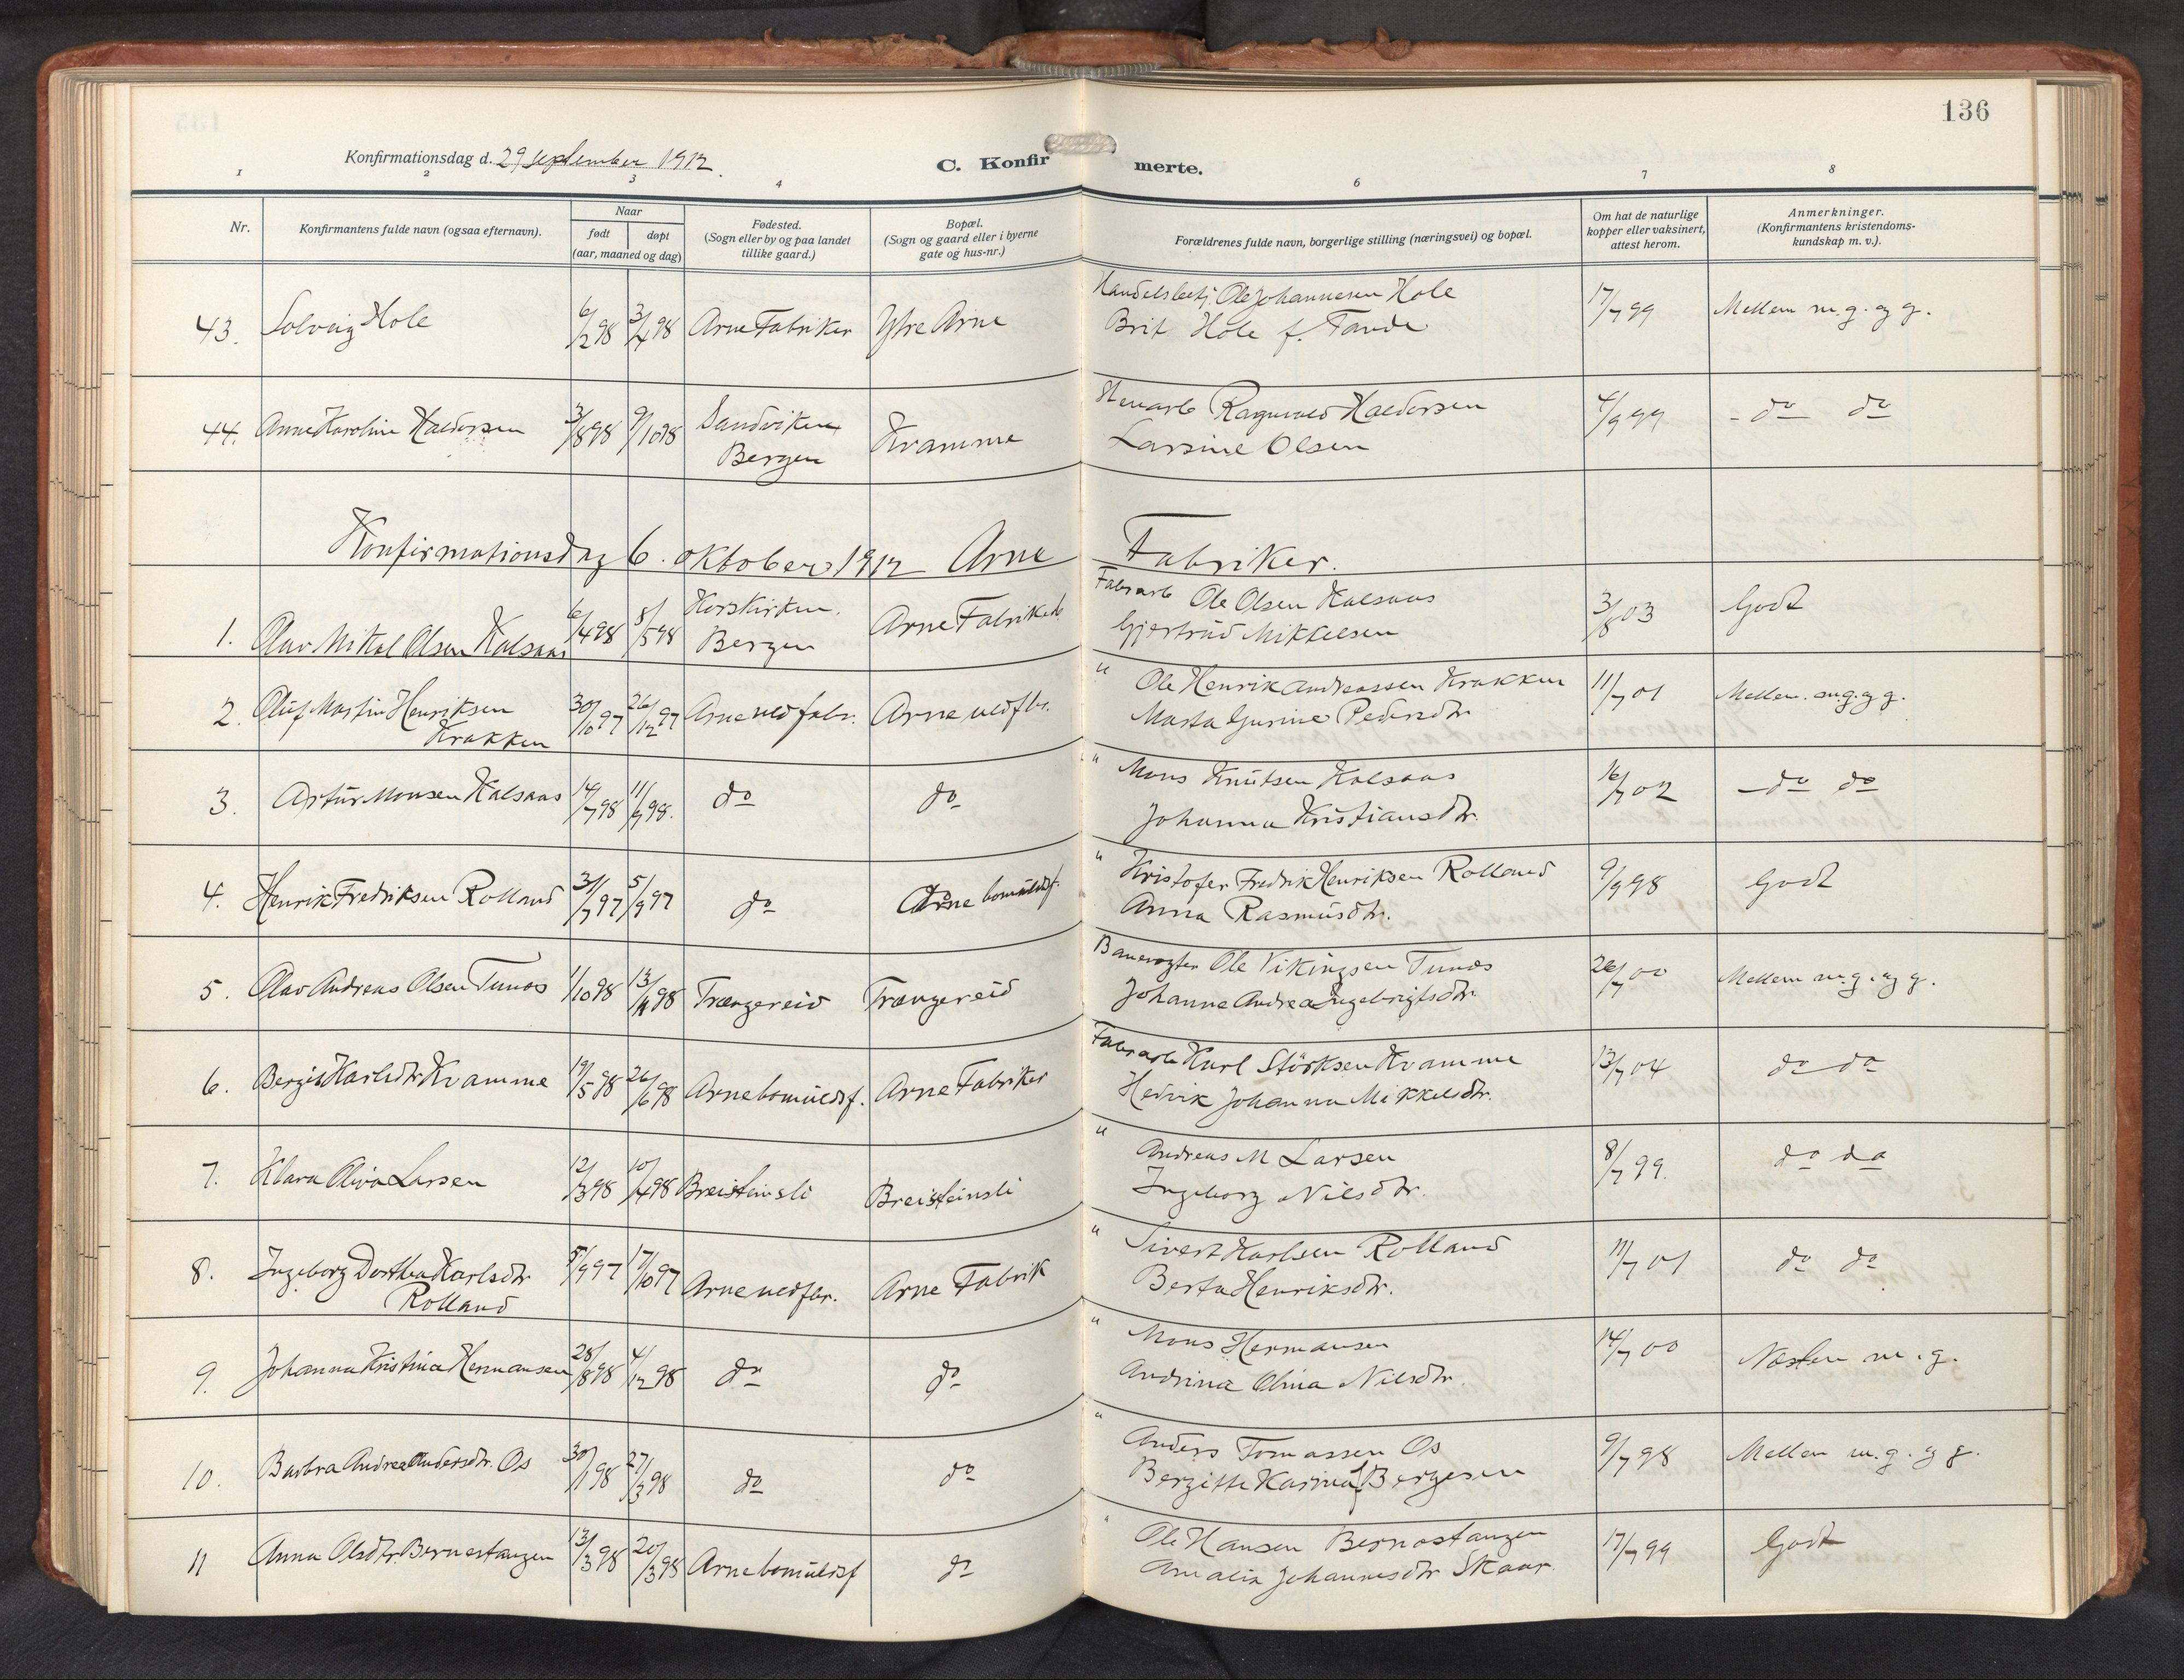 136
Konfirmationsdag d. 29 september 1912.
C. Konfir merte.
1 2 3 4 6 7 8
Nr.
Konfirmantens fulde navn (ogsaa efternavn).
Naar
født døpt
(aar, maaned og dag)
Fødested.
(Sogn eller by og paa landet
tillike gaard.)
Bopæl.
(Sogn og gaard eller i byerne
gate og hus-nr.)
Forældrenes fulde navn, borgerlige stilling (næringsvei) og bopæl.
Om hat de naturlige
kopper eller vaksinert,
attest herom.
Anmerkninger.
(Konfirmantens kristendoms-
kundskap m. v.).
43. Solveig Hole 6/2 98 3/4 98 Arne Fabriker Ytre Arne
Handelsbetj. Ole Johannesen Hole
Brit Hole f. Tande
17/7 99 Mellem m.g. og g.
44. Anne Karoline Haldorsen 3/8 98 9/10 98 Sandviken
Bergen
Kvamme
Stenarb Ragnvald Haldorsen
Larsine Olsen
4/9 99 - do do
Konfirmationsdag 6. oktober 1912 Arne Fabriker.
1. Olav Mikal Olsen Kalsaas 6/4 98 8/5 98 Korskirken.
Bergen
Arne Fabriked.
Fabrarb Ole Olsen Kalsaas
Gjertrud Mikkelsen
3/8 03 Godt
2. Oluf Martin Henriksen
Krakken
30/10 97 26/12 97 Arne uldfabr. Arne uldfbr.
" Ole Henrik Andreassen Krakken
Marta Gurine Pedersdtr
11/7 01 Mellem. m.g. og g.
3. Artur Monsen Kalsaas 14/7 98 11/9 98. do do
" Mons Knutsen Kalsaas
Johanna Kristiansdtr.
16/7 02 - do do
4. Henrik Fredriksen Rolland 31/7 97 5/9 97 do Arne bomuldsf.
" Kristofer Fredrik Henriksen Rolland
Anna Rasmusdtr.
9/9 98 Godt
5. Olav Andreas Olsen Tunes 1/10 98 13/11 98 Trængereid Trængereid
Banevogter Ole Vikingsen Tunes
Johanne Andrea Ingebrigtsdtr.
26/7 00 Mellem m.g. og g.
6. Bergit Karlsdtr Kvamme 19/5 98 26/6 98 Arne bomuldsf. Arne Fabriker
Fabrarb Karl Störksen Kvamme
Hedvik Johanna Mikkelsdtr.
13/7 04 do do
7. Klara Oliva Larsen 12/3 98 10/4 98 Breisteinsli Breisteinsli
" Andreas M Larsen
Ingeborg Nilsdtr.
8/7 99. do do
8. Ingeborg Dorthea Karlsdtr
Rolland
5/9 97 17/10 97 Arne uldfbr. Arne Fabrik
" Sivert Karlsen Rolland
Berta Henriksdtr.
11/7 01 do do
9. Johanna Kristina Hermansen 28/8 98 4/12 98 do do
" Mons Hermansen
Andrina Olina Nilsdtr.
14/7 00 Næsten m.g.
10. Barbra Andrea Andersdtr. Os 30/1 98 27/3 98 do do
" Anders Tomassen Os
Bergitte Karina Bergesen
9/7 98 Mellem m.g. og g.
11 Anna Olsdtr. Bernestangen 13/3 98 20/3 98 Arne bomuldsf do
" Ole Hansen Bernostangen
Amalia Johannesdtr Skaar.
17/7 99 Godt